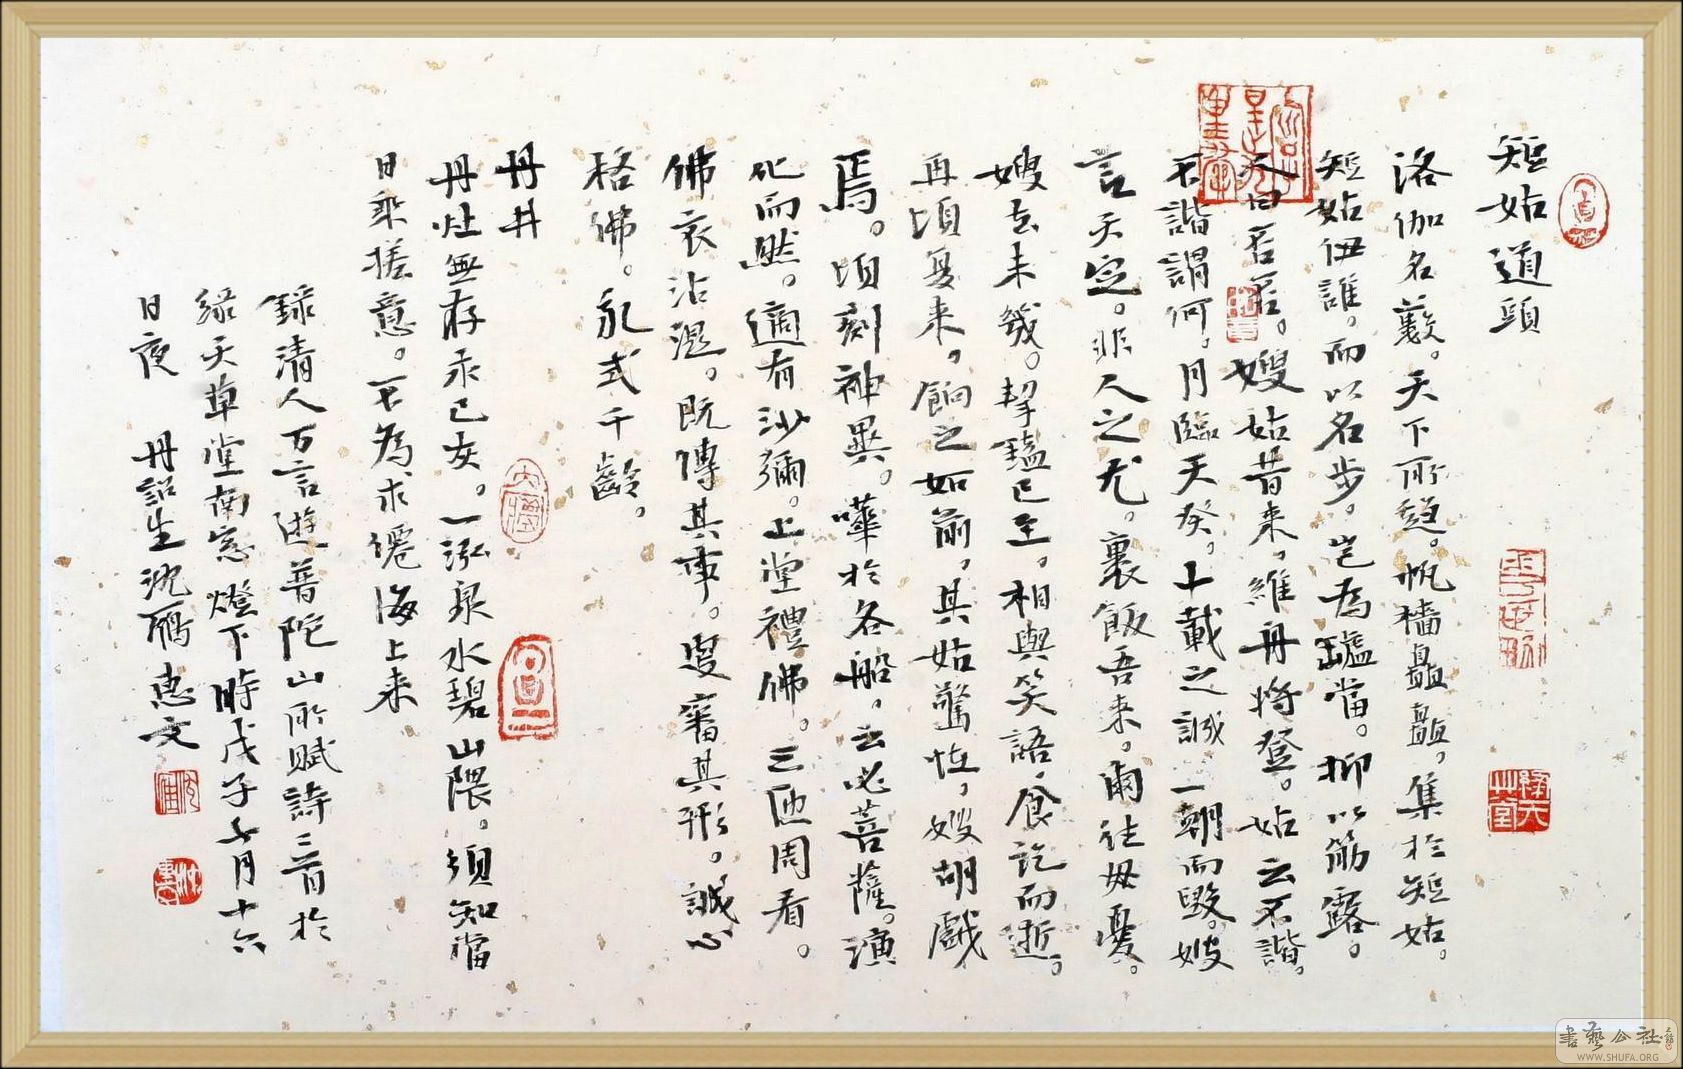 短姑道頭
洛伽名藪。天下所趨。帆檣矗矗。集於短姑。
短姑伊誰。而以名步。豈為壚當。抑以筋露。
夫曰否否。嫂姑昔来，維舟將登。姑云不諧。
不諧謂何。月臨天癸。十載之誠一朝而毀。嫂
言天定。非人之尤。裹飯吾来。爾往毋憂。
嫂去未幾。挈榼已至。相與笑語，食訖而逝。
再頃复来。餉之如前，其姑驚怪，嫂胡戲
焉。頃刻神異。嘩於各船，云必菩薩。演
化而然。適有沙彌。上堂禮佛。三匝周看。
佛衣沾濕。既傳其事。叟審其形。誠心
格佛。永式千齡。
丹井
丹灶無存汞已灰。一泓泉水碧山隈。須知當
日乘槎意。不為求僊海上来
錄清人万言遊普陀山所賦詩三首於
綠天草堂南窓燈下時戊子七月十六
日夜 丹韶生沈雁惠文
綠天草堂
書藝公社
WWW.SHUFA.ORG